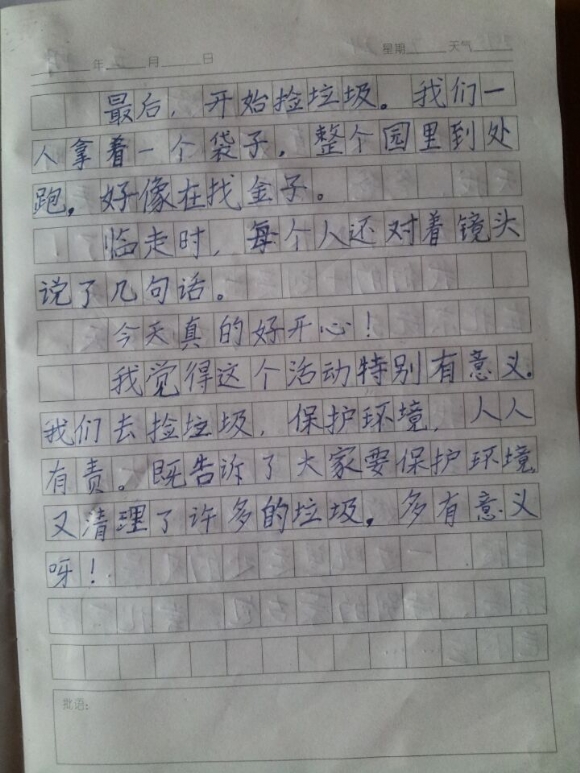 年 月 日 星期 天气
最后，开始捡垃圾。我们一
人拿着一个袋子，整个园里到处
跑，好像在找金子。
临走时，每个人还对着镜头
说了几句话。
今天真的好开心！
我觉得这个活动特别有意义。
我们去捡垃圾，保护环境，人人
有责。既告诉了大家要保护环境
又清理了许多的垃圾，多有意义
呀！
批语：